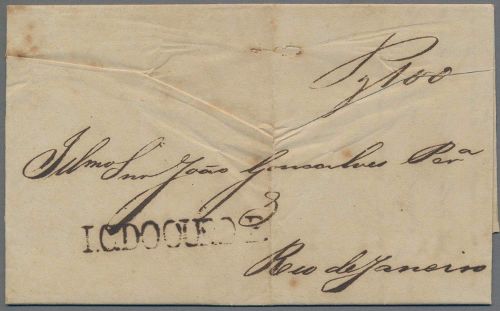 Pg 100
Illmo Snr João Gonsalves Perª
3
I.C.DO OURO P.
Rio de Janeiro